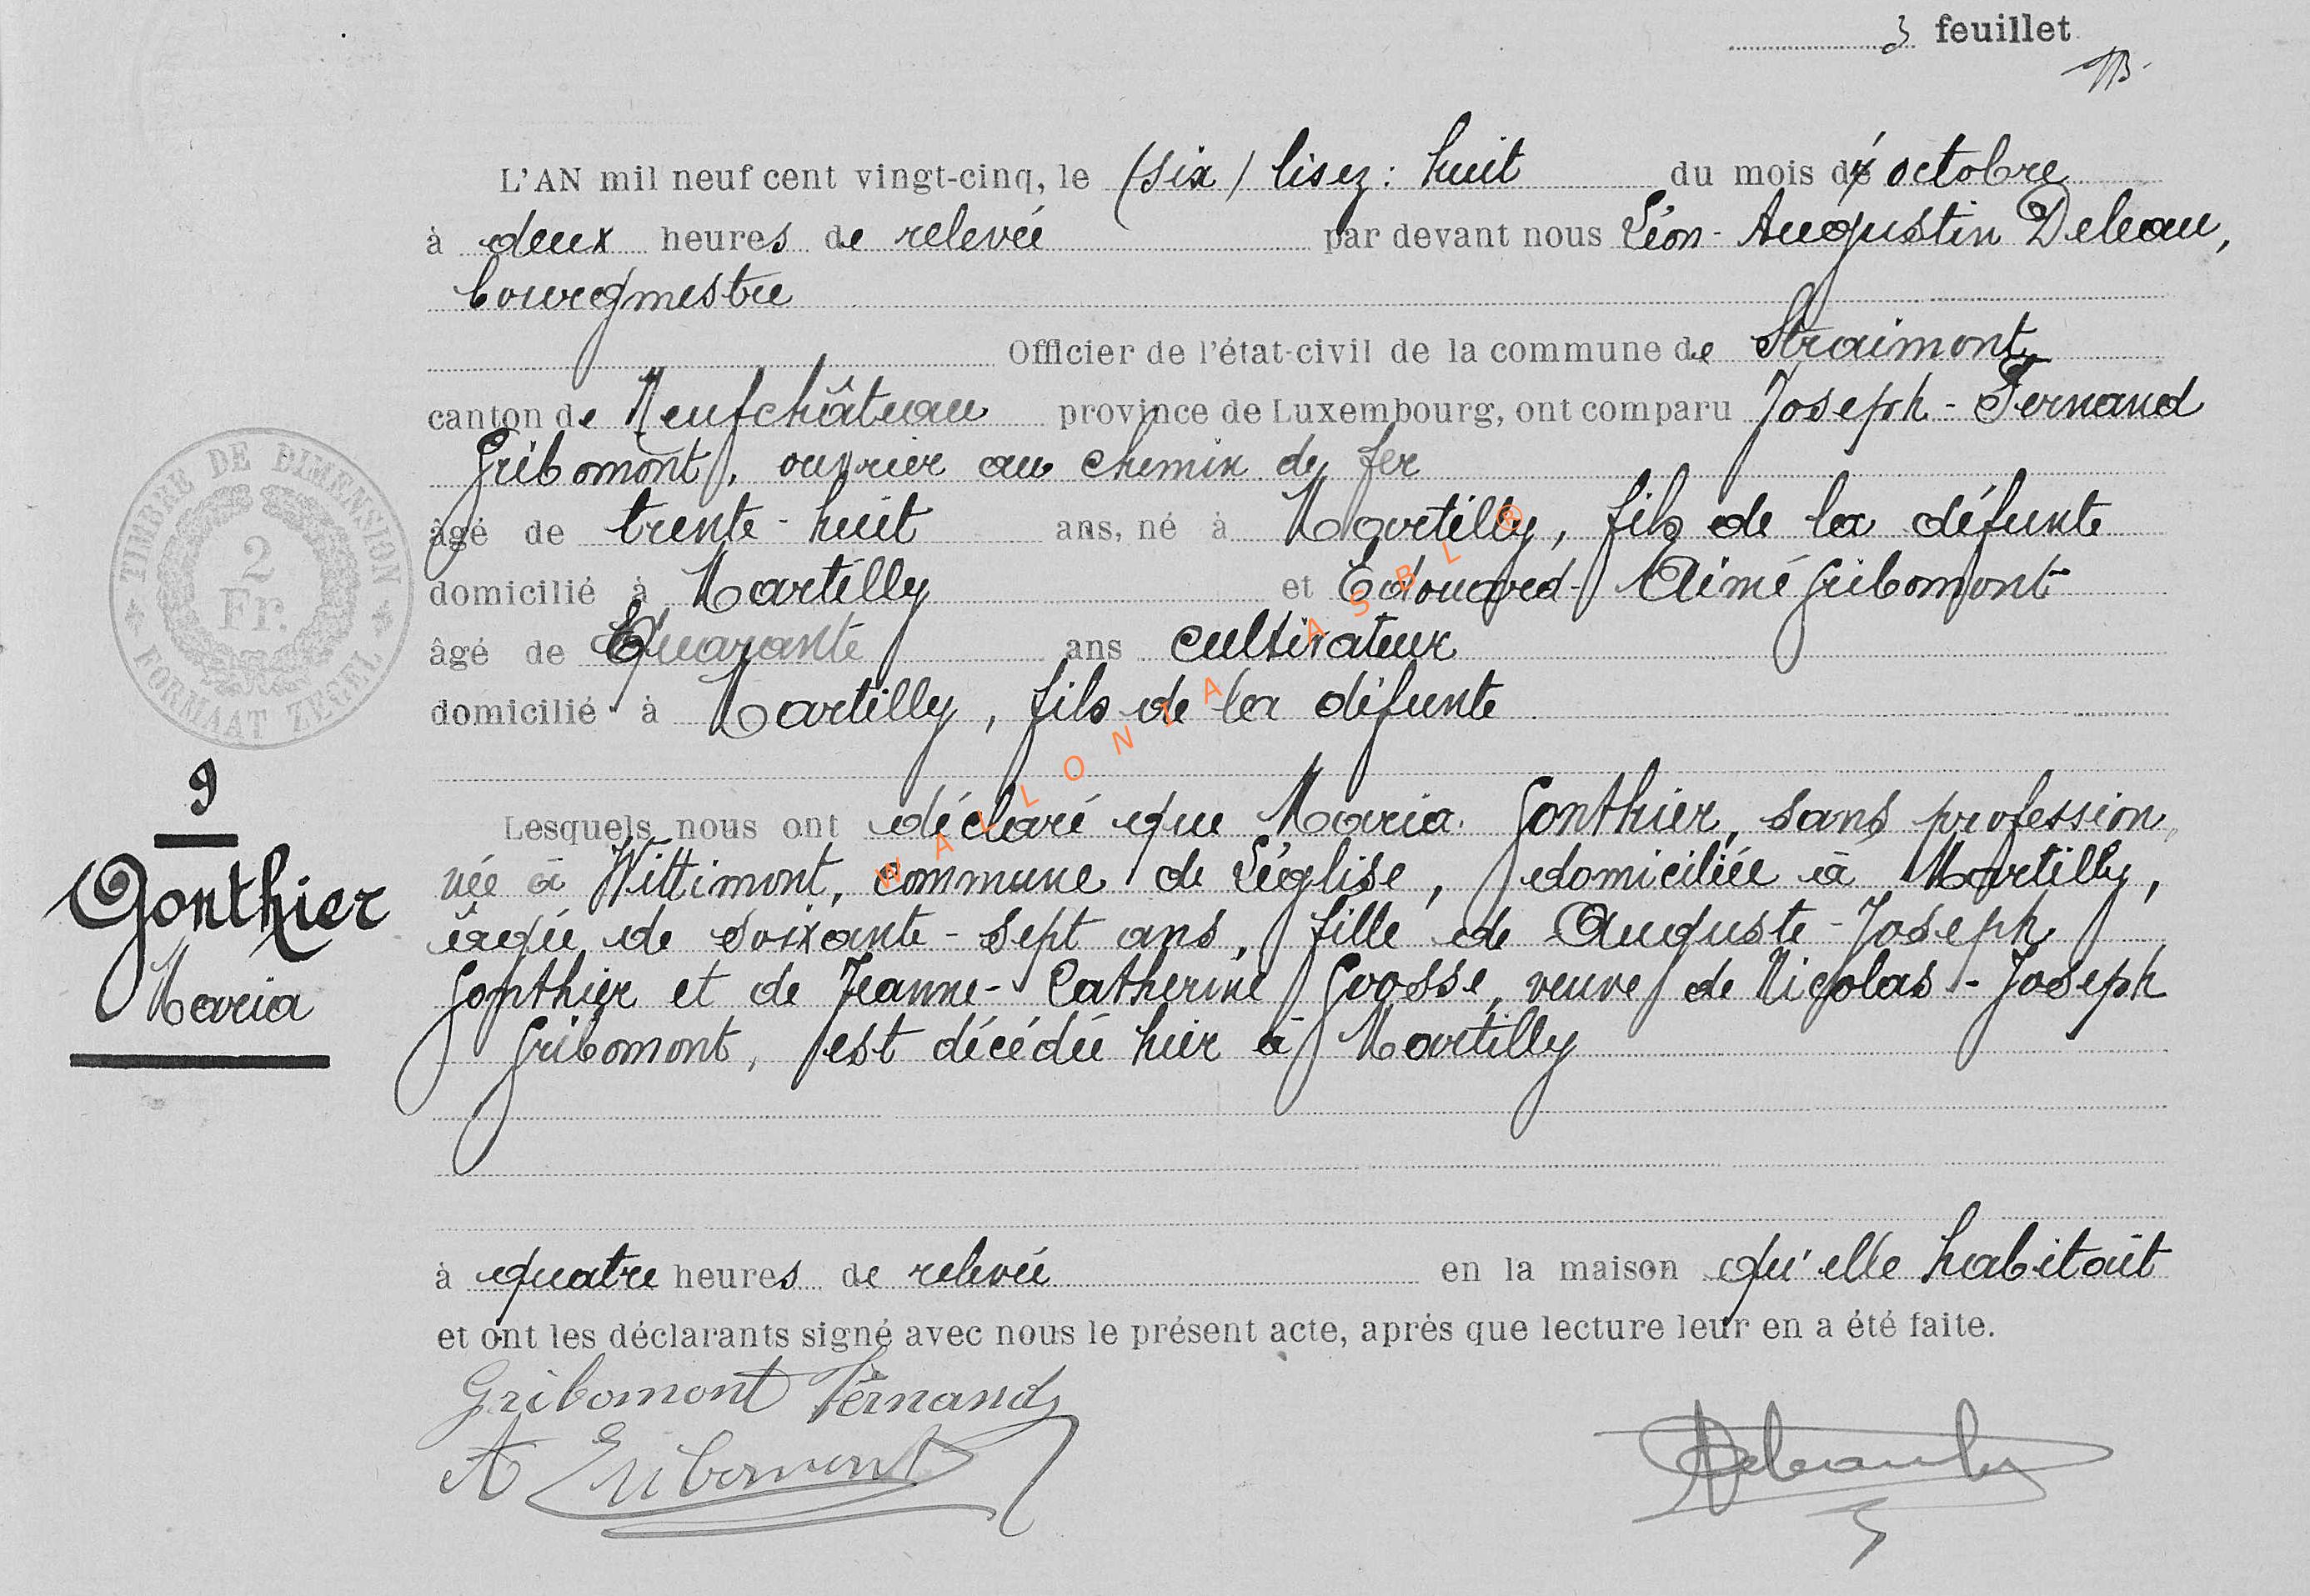 3 feuillet
L'AN mil neuf cent vingt-cinq, le (six) lisez: huit du mois d' octobre
à deux heures de relevée par devant nous Léon-Augustin Deleau,
bourgmestre
Officier de l'état-civil de la commune de Straimont
canton de Neufchâteau province de Luxembourg, ont comparu Joseph-Fernand
Gribomont, ouvrier au chemin de fer
âgé de trente-huit ans, né à Martilly, fils de la défunte
domicilié à Martilly et Edouard-Aimé Gribomont
âgé de Quarante ans cultivateur
domicilié à Martilly, fils de la défunte
TIMBRE DE DIMENSION
2
Fr.
FORMAAT ZEGEL
9
Gonthier
Maria
Lesquels nous ont déclaré que Maria Gonthier, sans profession,
née à Wittimont, commune de Léglise, domiciliée à Martilly,
âgée de soixante-sept ans, fille de Auguste-Joseph
Gonthier et de Jeanne-Catherine Goosse, veuve de Nicolas-Joseph
Gribomont, est décédée hier à Martilly
à quatre heures de relevée en la maison qu'elle habitait
et ont les déclarants signé avec nous le présent acte, après que lecture leur en a été faite.
Gribomont Fernand
A Gribomont
WALLONIA ASBL ®